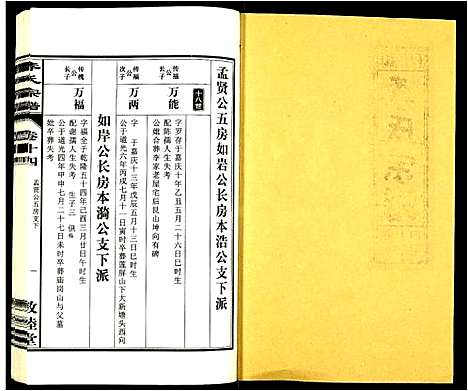 孟贤公五房如岩公长房本浩公支下派
十八世
传福
次子
万能
字罗存于嘉庆十年乙丑五月二十六日巳时生
配陈孺人生失考
公媲合葬李家老屋宅后艮山坤向有碑
传福
三子
万两
字 于嘉庆十三年戊辰五月十三日巳时生
公于道光六年丙戌七月十一日寅时卒葬莲屏山下大新塘头西向
如岸公长房本漪公支下派
传槐
长子
万福
字福全于乾隆五十四年己酉三月廿日午时生
配龚孺人生失考 生子三 俱殇
公于道光四年甲申七月二十七日未时卒葬庙岗山与父墓
妣卒葬失考
卷十四
孟贤公五房支下
一
敦睦堂